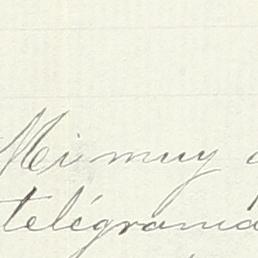 Mi muy
telégrama